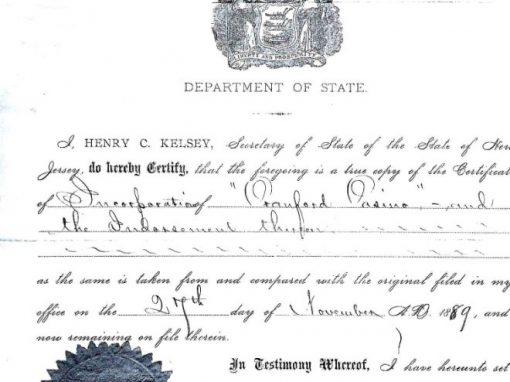 LIBERTY AND PROSPERITY
DEPARTMENT OF STATE.
I, HENRY C. KELSEY, Secretary of State of the State of New
Jersey, do hereby Certify, that the foregoing is a true copy of the Certificat
of Incorporation of "Cranford Casino" - and
the Indorsement thereon
as the same is taken from and compared with the original filed in my
office on the 27th day of November A.D. 1889, and
now remaining on file therein.
In Testimony Whereof, I have hereunto set